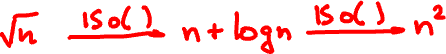 √n iso( ) → n + log n iso( ) → n²